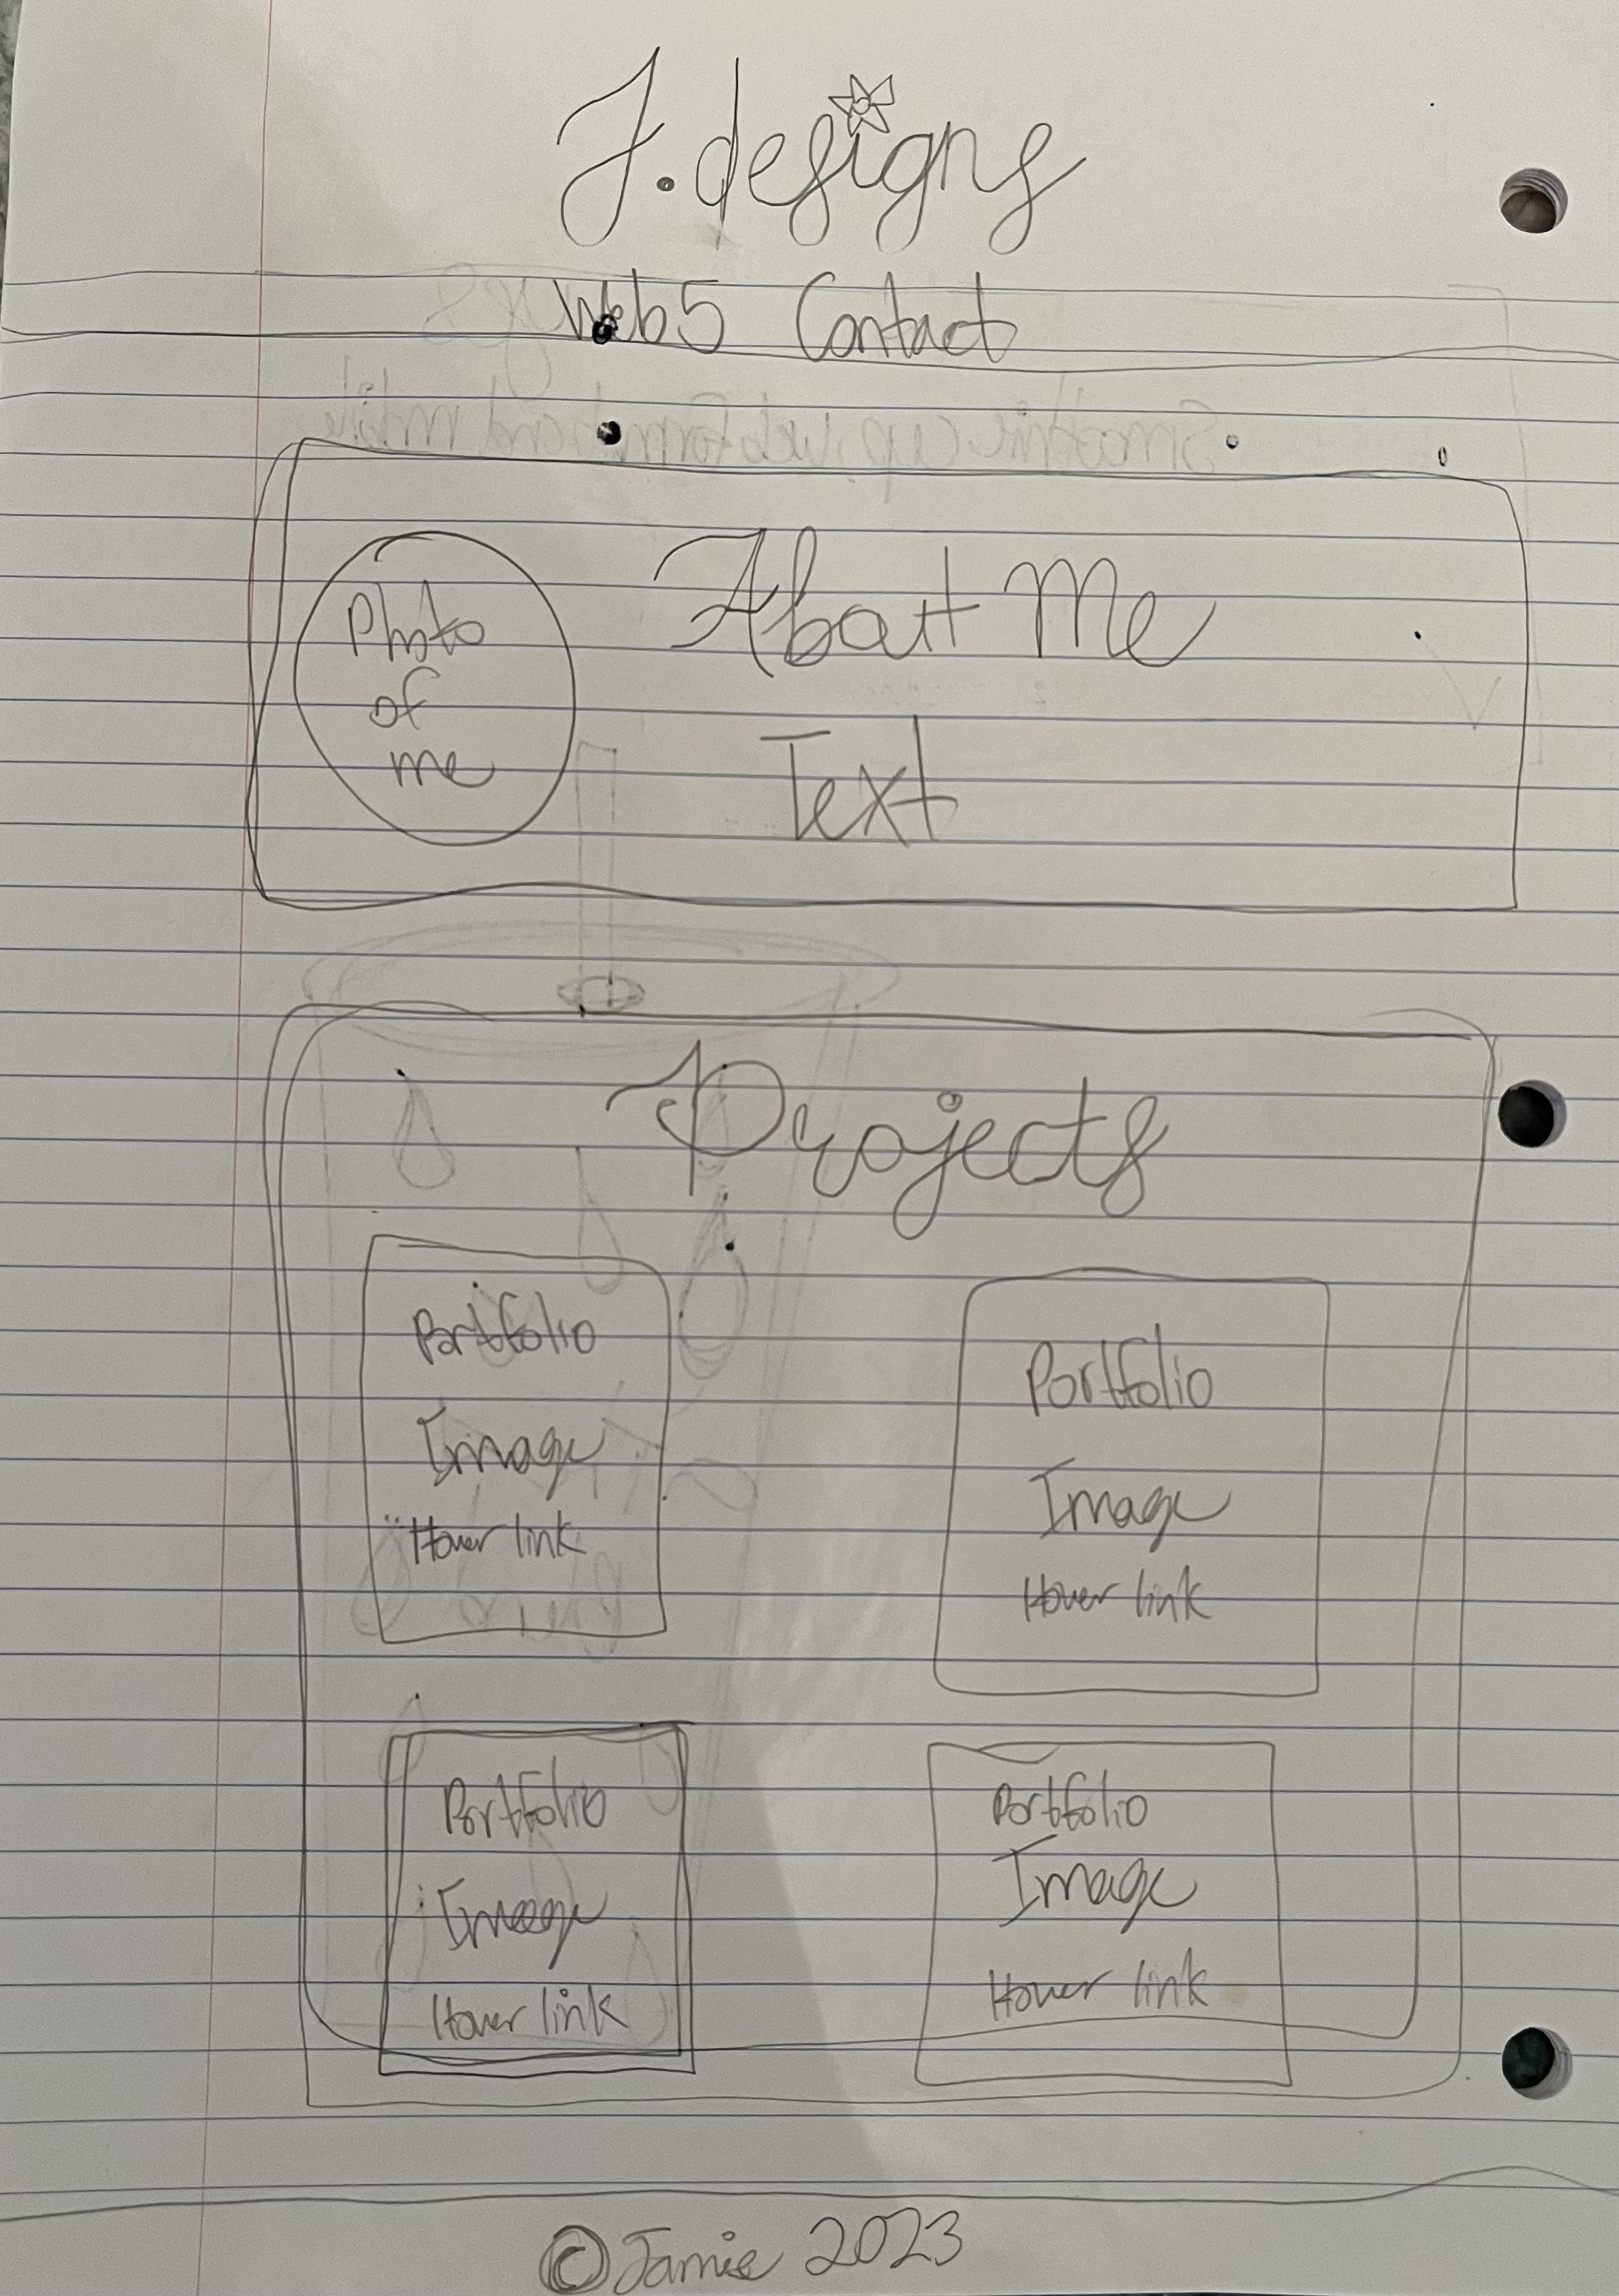 J.designs
Web5 Contact
Smoothie cup, web form and mobile
Photo
of
me
About Me
Text
Projects
Portfolio
Image
Hover link
Portfolio
Image
Hover link
Portfolio
Image
Hover link
Portfolio
Image
Hover link
©Jamie 2023